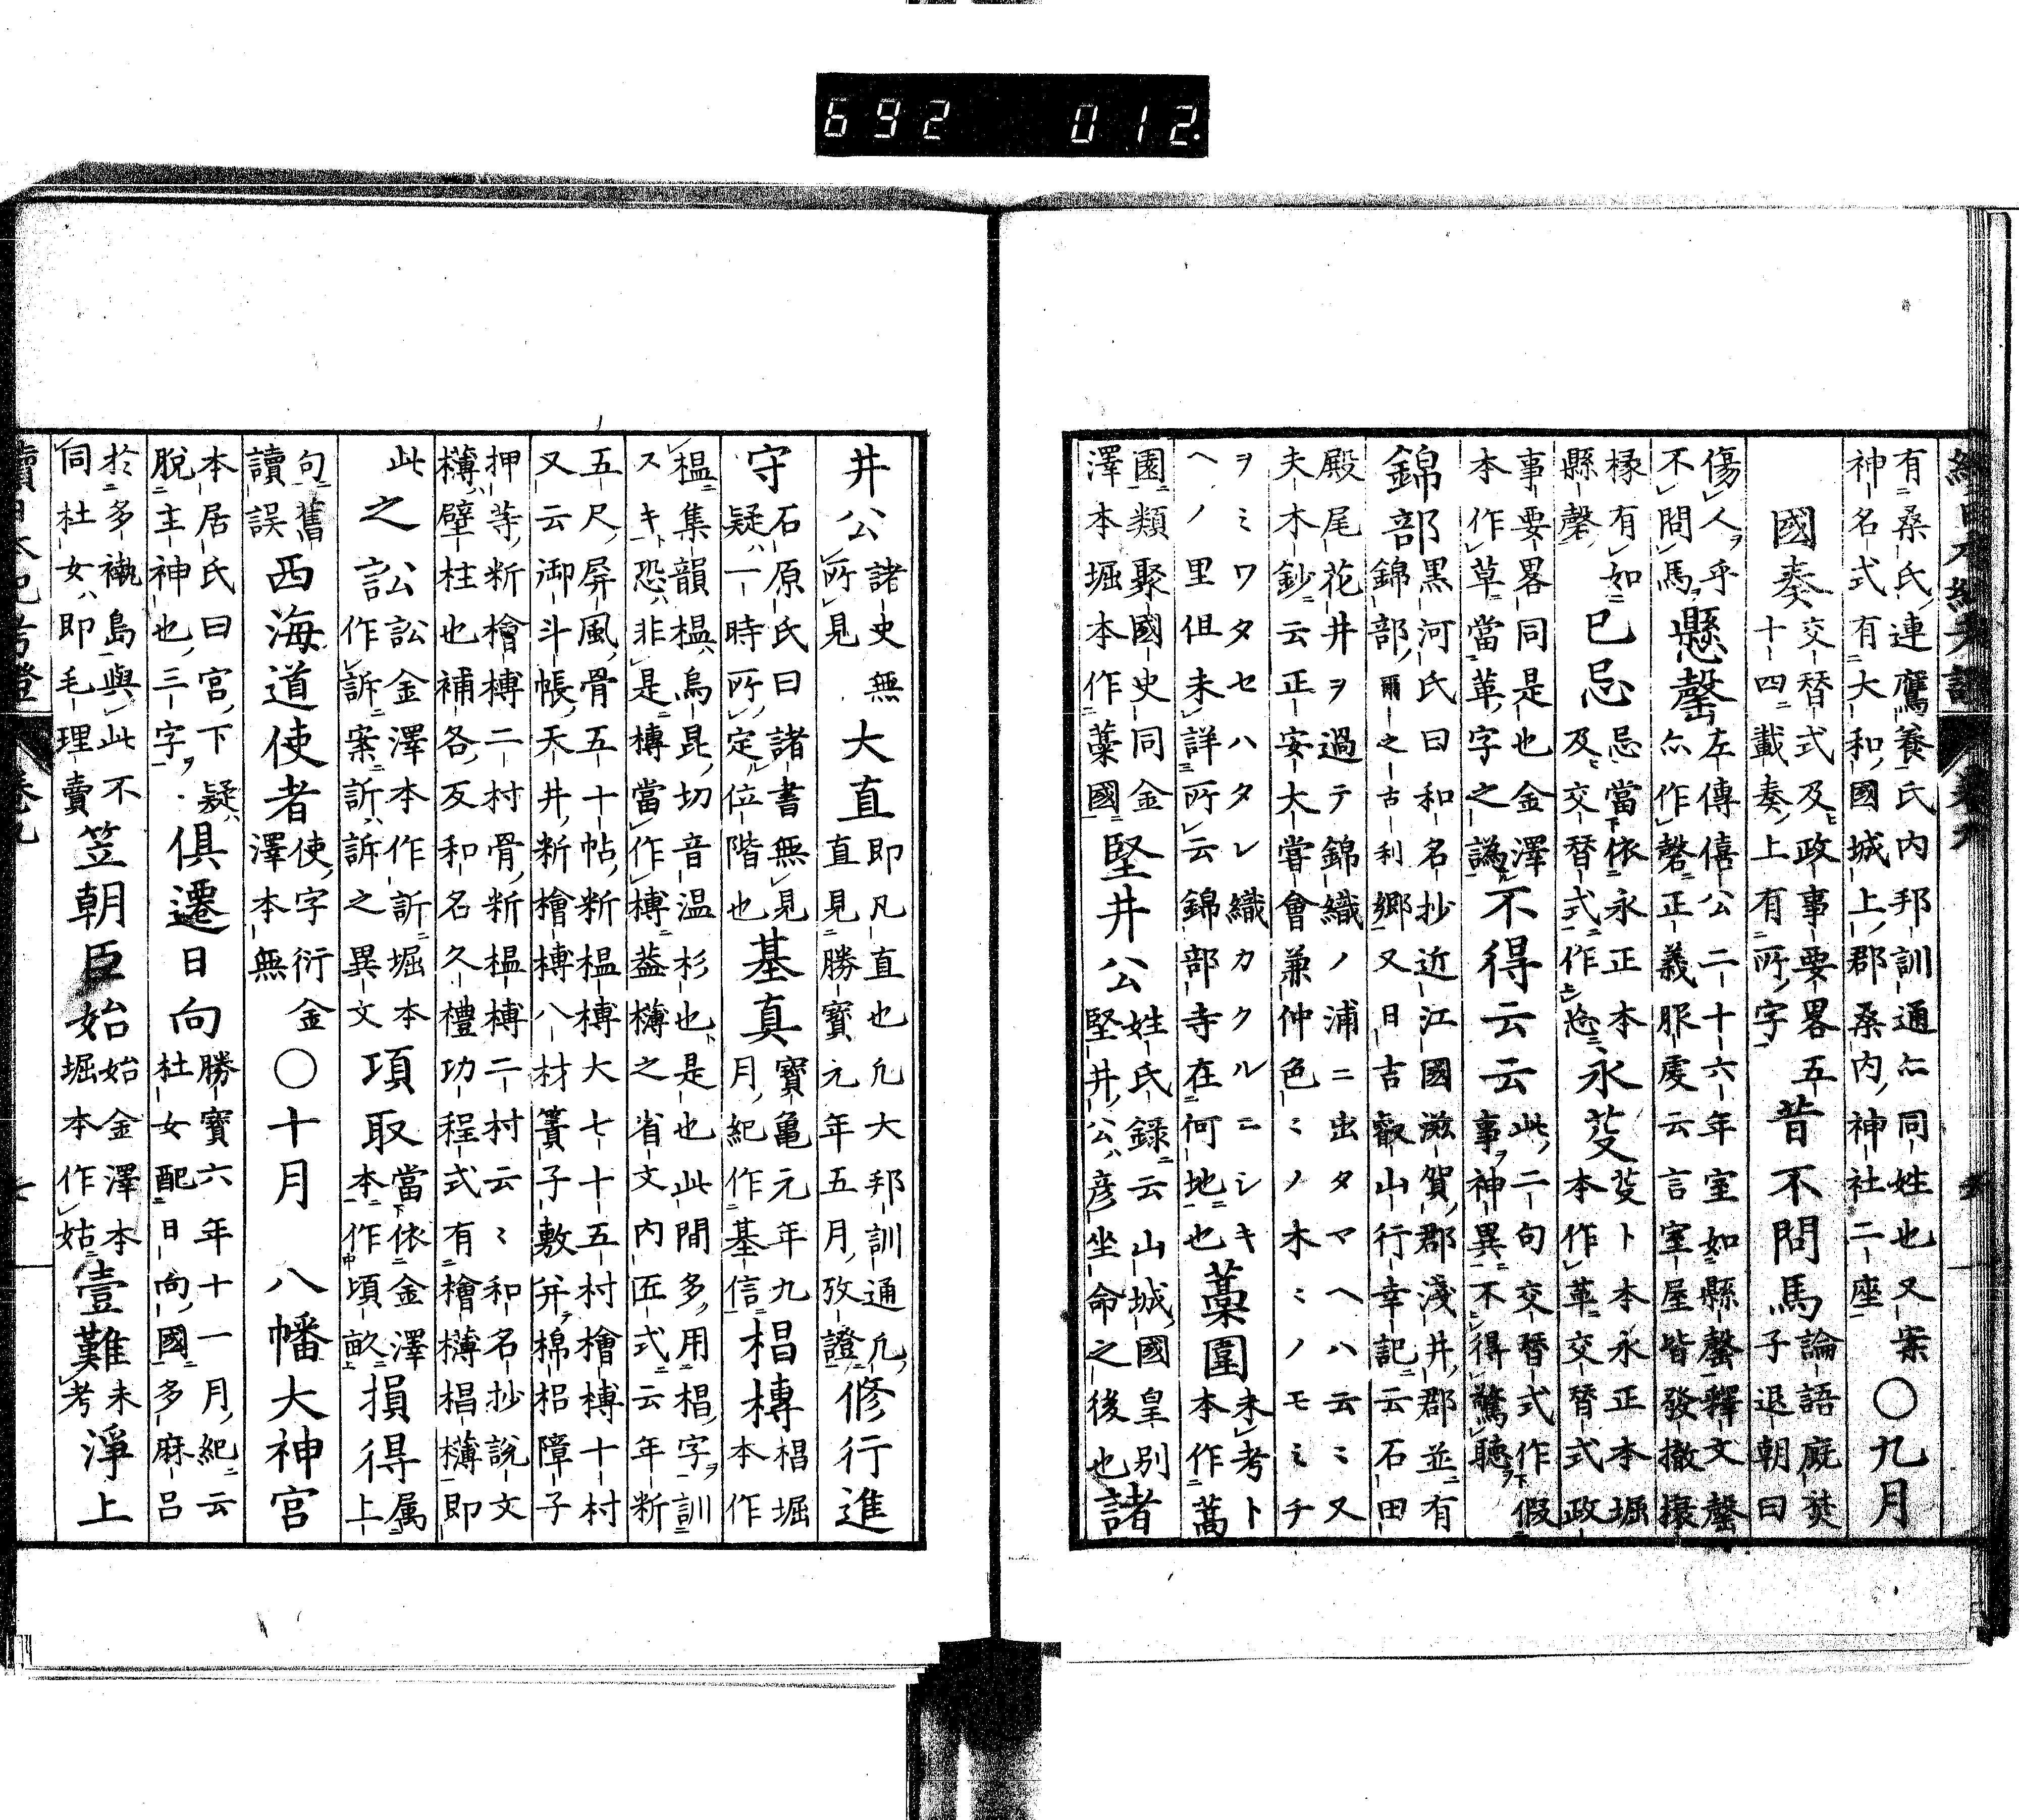 692 012.
有桑氏連鷹養氏内邦訓通亦同姓也又案
神名式有大和國城上郡桑内神社二座〇九月
國奏交替式及政事要畧五
十四載奏上有所字昔不問馬論語廐焚
子退朝曰
傷人乎
不問馬懸罄左傳僖公二十六年室如縣罄釋文罄
亦作磬正義服虔云言室屋皆發撤攘
椽有如
縣磬已忌忌當依永正本
及交替式作忘永芟芟卜本永正本堀
本作革交替式政
事要畧同是也金澤
本作草當革字之譌不得云云此二句交替式作假
事神異不得驚聽
錦部黒河氏曰和名抄近江國滋賀郡淺井郡並有
錦部爾之古利郷又日吉叡山行幸記云石田
殿尾花井ヲ過テ錦織ノ浦ニ出タマヘハ云ミ又
夫木鈔云正安大嘗會兼仲色ミノ木ミノモミチ
ヲミワタセハタレ織カクルニシキ
ヘノ里但未詳所云錦部寺在何地也藁園未考卜
本作萬
園類聚國史同金
澤本堀本作藁國堅井公姓氏録云山城國皇別
堅井公彦坐命之後也諸
井公諸史無
所見大直即凡直也凡大邦訓通凡
直見勝寶元年五月攷證修行進
守石原氏曰諸書無見
疑一時所定位階也基真寶亀元年九
月紀作基信椙榑椙堀
本作
榲集韻榲烏昆切音温杉也是也此間多用椙字訓
スキ恐非是榑當作榑蓋欂之省文内匠式云年䉼
五尺屏風骨五十帖䉼榲榑大七十五村檜榑十村
又云御斗帳天井䉼檜榑八材簀子敷并棉梠障子
押等䉼檜榑二村骨䉼榲榑二村云ミ和名抄説文
欂壁柱也補各反和名久禮功程式有檜欂椙欂即
此之訟訟金澤本作訴堀本
作訴案訴訴之異文項取當依金澤
本作頃畝損得属
上
句舊
讀誤西海道使者使字衍金
澤本無〇十月　八幡大神宮
本居氏曰宮下疑
脱主神也三字俱遷日向勝寶六年十一月紀云
杜女配日向國多麻呂
於多褹島與此不
同杜女即毛理賣笠朝臣始始金澤本
堀本作姑壹難未
考淨上